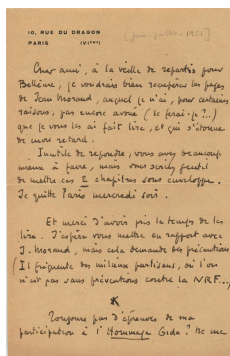 10, RUE DU DRAGON
PARIS (VIème)
[Juin-juillet 1951]
Cher ami, à la veille de repartir pour
Bellême, je voudrais bien récupérer les pages
de Jean Morand, auquel je n'ai, pour certaines
raisons, pas encore avoué (le ferai-je?..)
que je vous les ai fait lire, et qui s'étonne
de mon retard.
Inutile de répondre, vous avez beaucoup
mieux à faire, mais vous seriez gentil
de mettre ces 2 chapitres sous enveloppe.
Je quitte Paris mercredi soir.
Et merci d'avoir pris le temps de les
lire. J'espère vous mettre en rapport avec
J. Morand, mais cela demande des précautions
(Il fréquente des milieux partisans, où l'on
n'est pas sans préventions contre la NRF...)
Toujours pas d'épreuves de ma
participation à l'Hommage Gide? Ne me